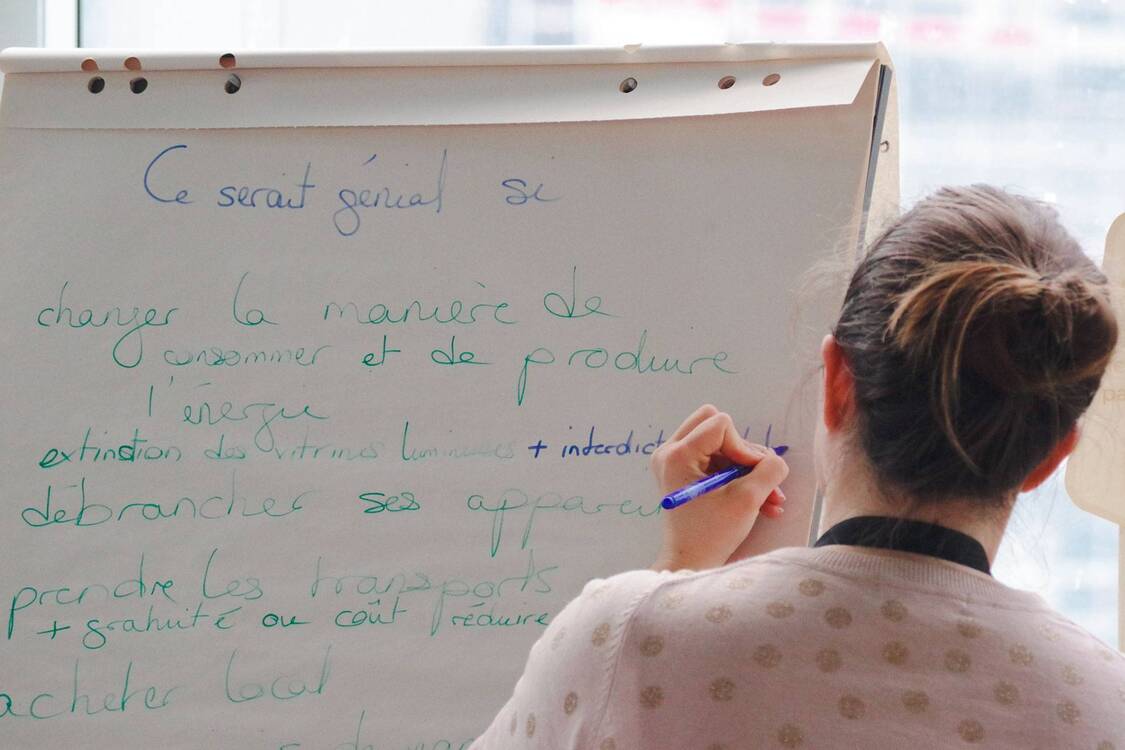 Ce serait génial si
changer la manière de
consommer et de produire
l'énergie
extinction des vitrines lumineuses +
débrancher ses
prendre les transports
+ gratuité ou coût réduire
acheter local